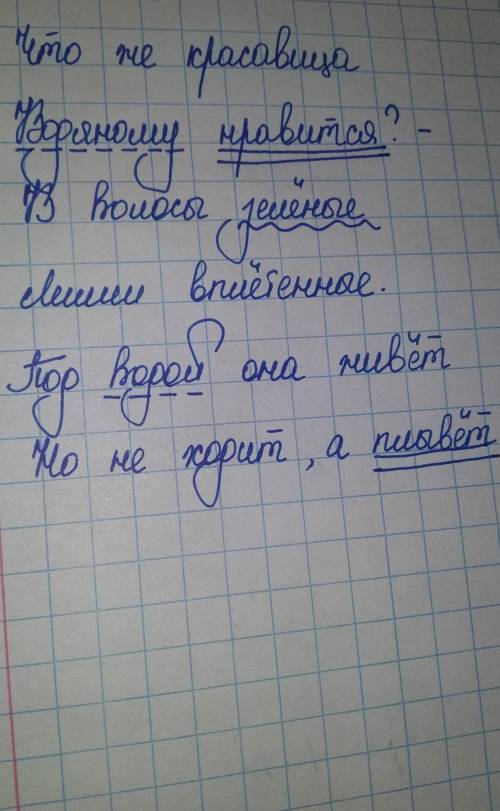 Что же красавица
Водяному нравится? -
В волосы зелёные
Лилии вплётенные.
Под водой она живёт
Но не ходит, а плывёт